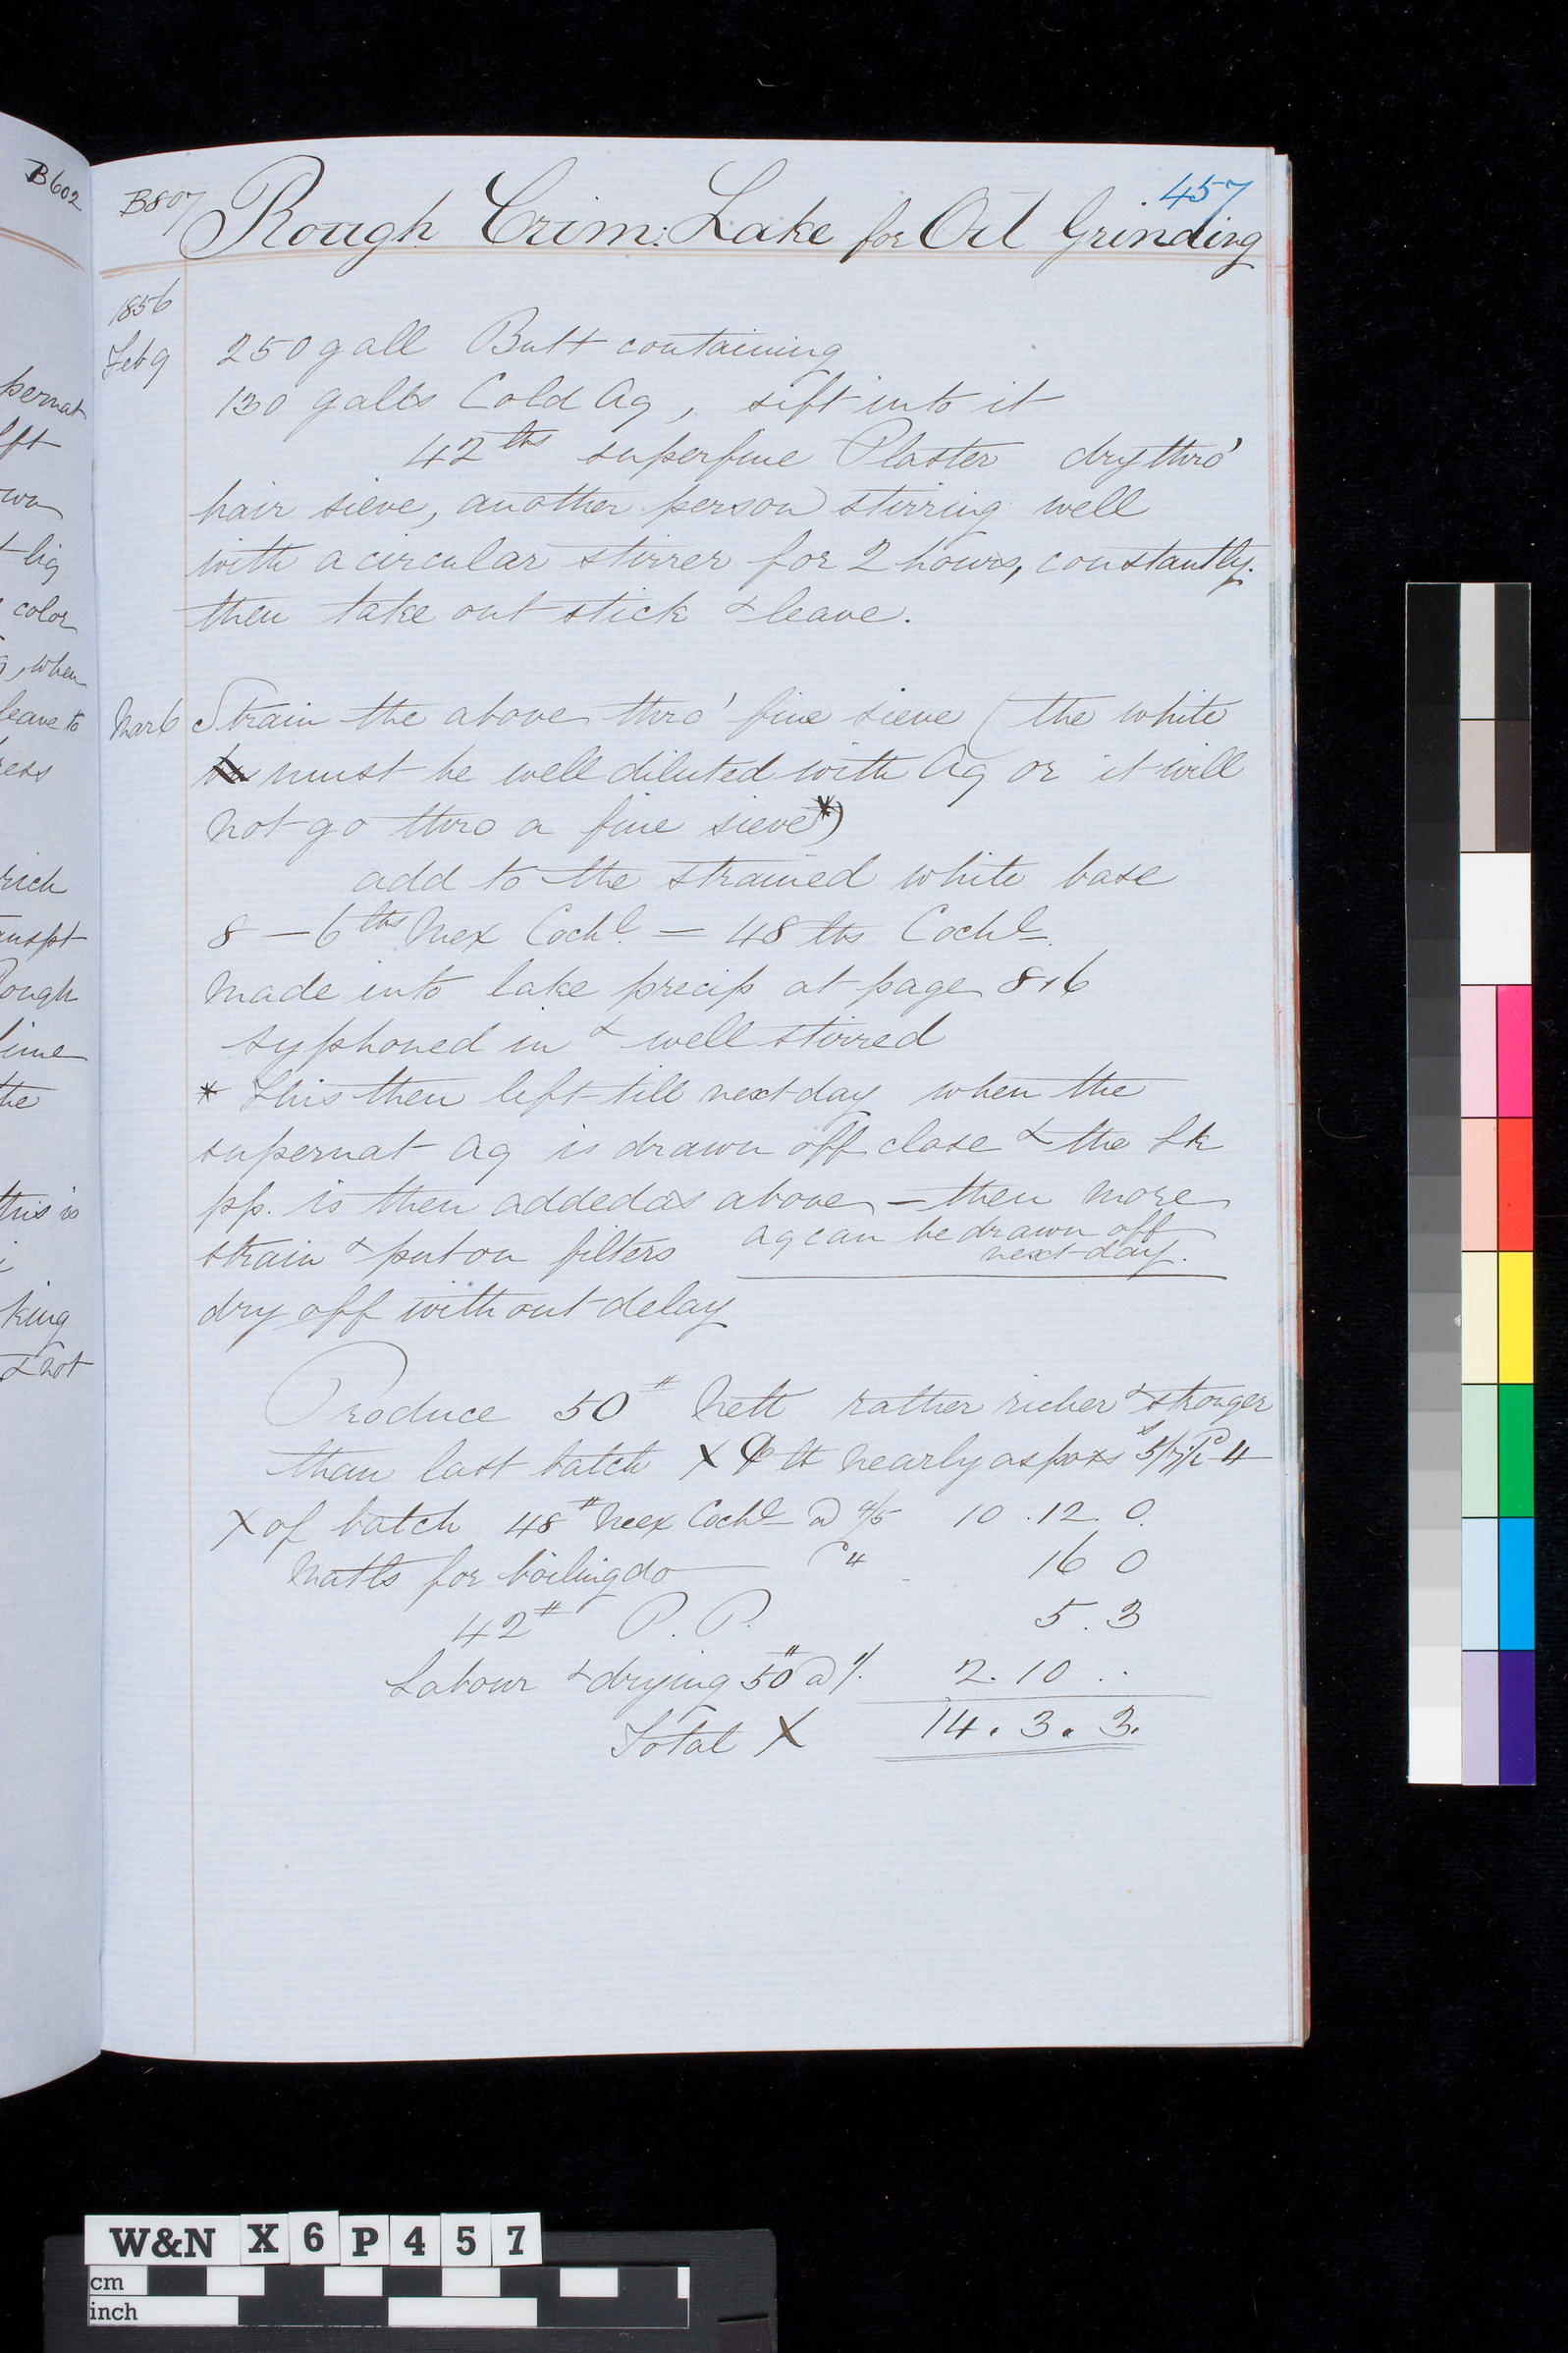 B602
pernat
ft
lig
color
when
leave to
ess
rich
anspt
ough
ime
the
this is
king
& not
B807
457
Rough Crim: Lake for Oil Grinding
1856
Feb 9
250 gall Butt containing
130 galls Cold Aq, sift into it
42 lbs superfine Plaster dry thro'
hair sieve, another person stirring well
with a circular stirrer for 2 hours, constantly.
then take out stick & leave.
Mar 6 Strain the above thro' fine sieve (the white
must be well diluted with Aq or it will
not go thro a fine sieve*)
add to the strained white base
8 – 6 lbs Mex Cochl. = 48 lbs Cochl.
made into lake precip at page 816
syphoned in & well stirred
* This then left till next day when the
supernat Aq is drawn off close & the Lk
pp. is then added as above – then more
aq can be drawn off
next day.
strain & put on filters
dry off without delay
Produce 50# Nett rather richer & stronger
than last batch X lb nearly as poss 5/7
X of batch 48# Mex Cochl @ 4/5 10. 12. 0.
Matls for boiling do 16 0
42# P. P. 5. 3
Labour & drying 50# @ 1/. 2. 10 ..
Total X 14. 3. 3.
W&N X 6 P 4 5 7
cm
inch